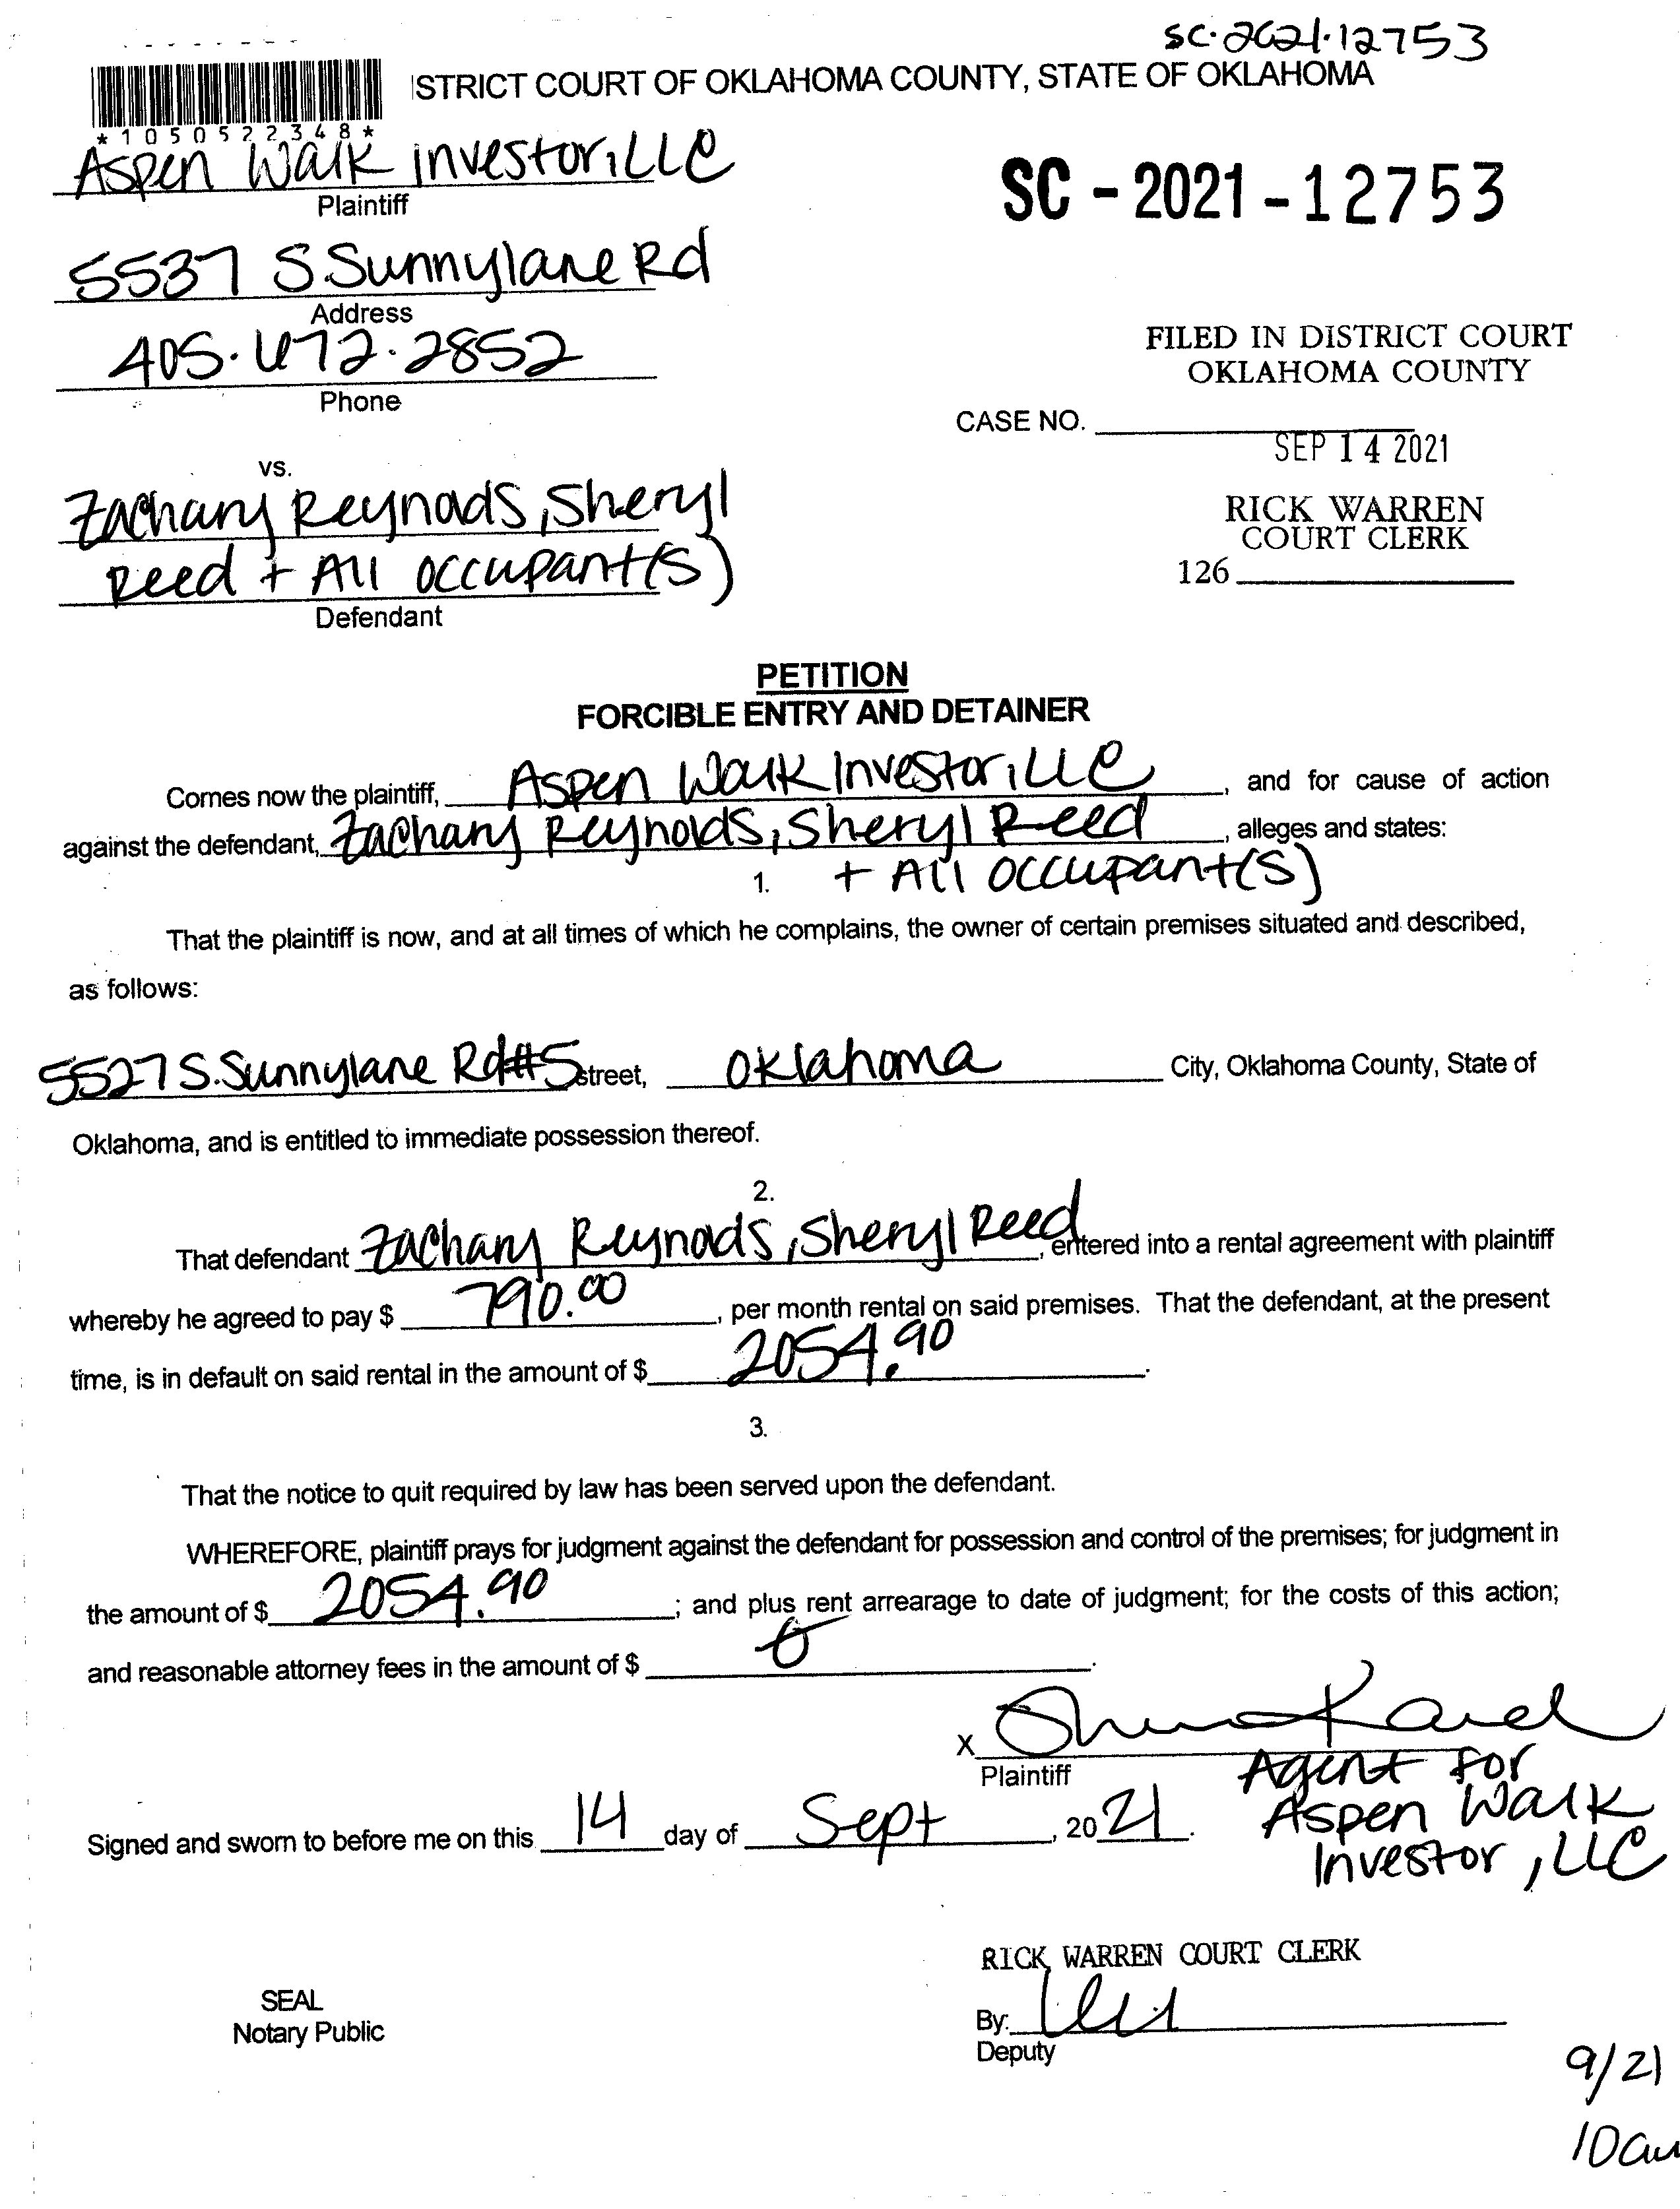 SC-2021-12753
ISTRICT COURT OF OKLAHOMA COUNTY, STATE OF OKLAHOMA
*1050522348*
Aspen Walk investor, LLC
Plaintiff
SC - 2021 - 12753
5537 S. Sunnylane Rd
Address
405. 672. 2852
Phone
FILED IN DISTRICT COURT
OKLAHOMA COUNTY
CASE NO.
SEP 14 2021
RICK WARREN
COURT CLERK
126
vs.
Zachary Reynods, Sheryl
Reed + All occupant(s)
Defendant
PETITION
FORCIBLE ENTRY AND DETAINER
Comes now the plaintiff, Aspen Walk Investor, LLC, and for cause of action
against the defendant, Zachary Reynolds, Sheryl Reed, alleges and states:
1. + All occupant(s)
That the plaintiff is now, and at all times of which he complains, the owner of certain premises situated and described,
as follows:
5527 S. Sunnylane Rd #5 street, Oklahoma City, Oklahoma County, State of
Oklahoma, and is entitled to immediate possession thereof.
2.
That defendant Zachary Reynods, Sheryl Reed, entered into a rental agreement with plaintiff
whereby he agreed to pay $ 790.00, per month rental on said premises. That the defendant, at the present
time, is in default on said rental in the amount of $ 2054.90.
3.
That the notice to quit required by law has been served upon the defendant.
WHEREFORE, plaintiff prays for judgment against the defendant for possession and control of the premises; for judgment in
the amount of $ 2054.90; and plus rent arrearage to date of judgment; for the costs of this action;
and reasonable attorney fees in the amount of $ 0.
X
Plaintiff
Agent for
Aspen Walk
Investor, LLC
Signed and sworn to before me on this 14 day of Sept, 2021.
RICK WARREN COURT CLERK
SEAL
Notary Public
By:
Deputy
9/21
10am